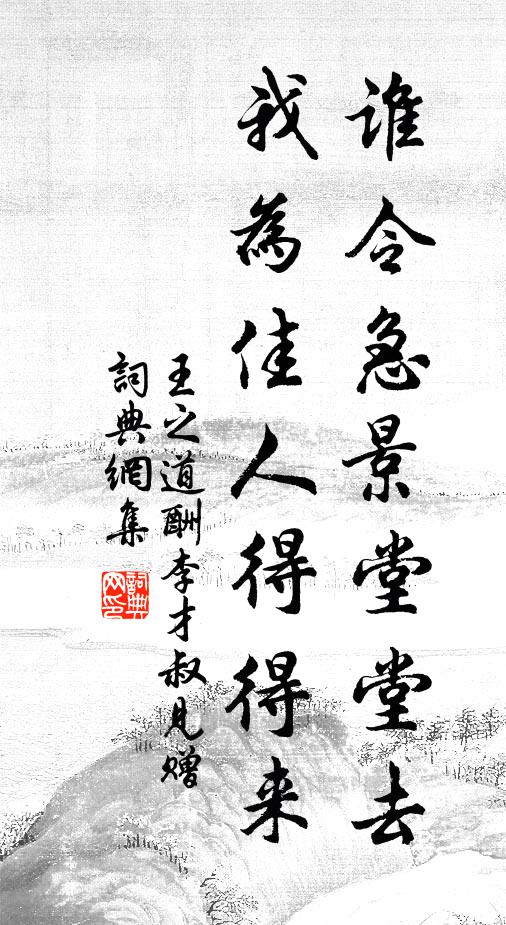 谁令急景堂堂去
我為佳人得得来
王之道酬李才叔見赠
詞典網集
詞典网印